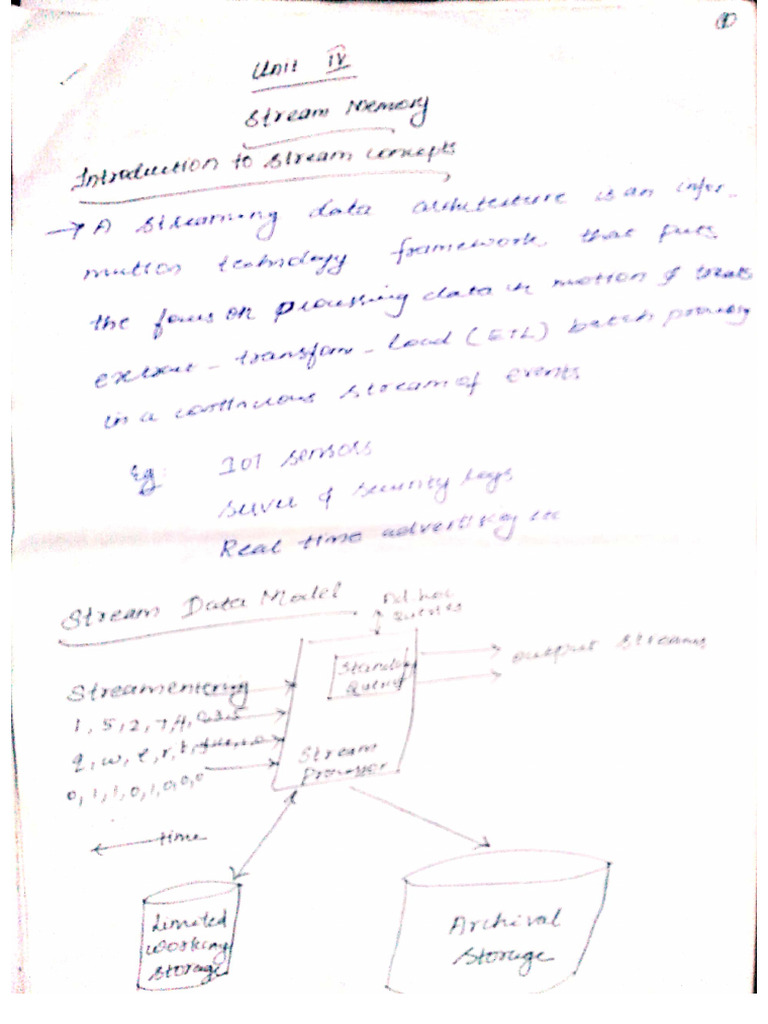 1
Unit IV
Stream Memory
Introduction to Stream concepts
→ A Streaming data architecture is an infor-
mation technology framework that puts
the focus on processing data in motion & treats
extract - transform - load (ETL) batch processing
in a continuous stream of events
Eg: IOT sensors
Server & security logs
Real time advertising etc
Stream Data Model
Ad hoc
Queries
Standing
Query
output streams
Stream entering
1, 5, 2, 7, 4,
q, w, e, r, t,
0, 1, 1, 0, 1, 0, 0, 0
Stream
Processor
time
Limited
working
storage
Archival
Storage